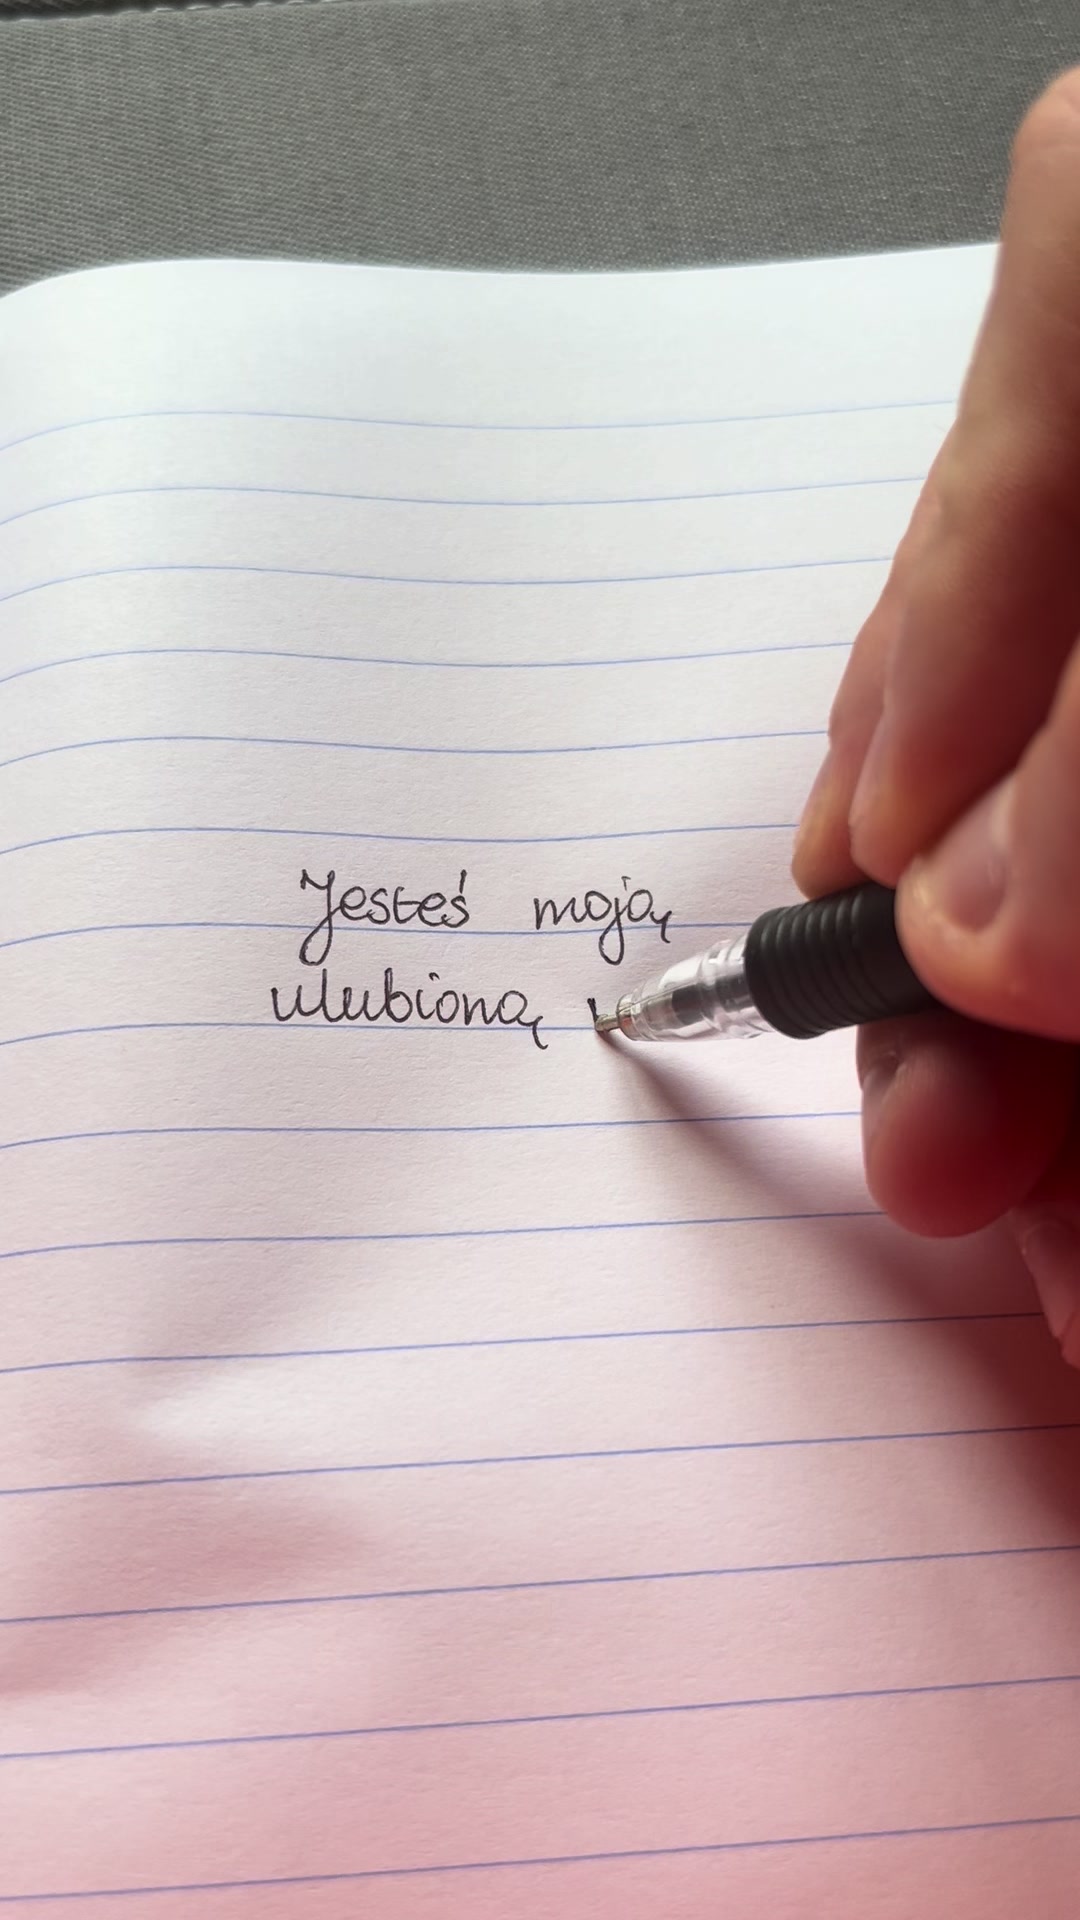 Jesteś moją
ulubioną